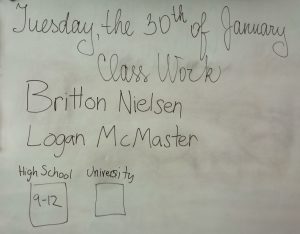 Tuesday, the 30th of January
Class Work
Britton Nielsen
Logan McMaster
High School University
9-12